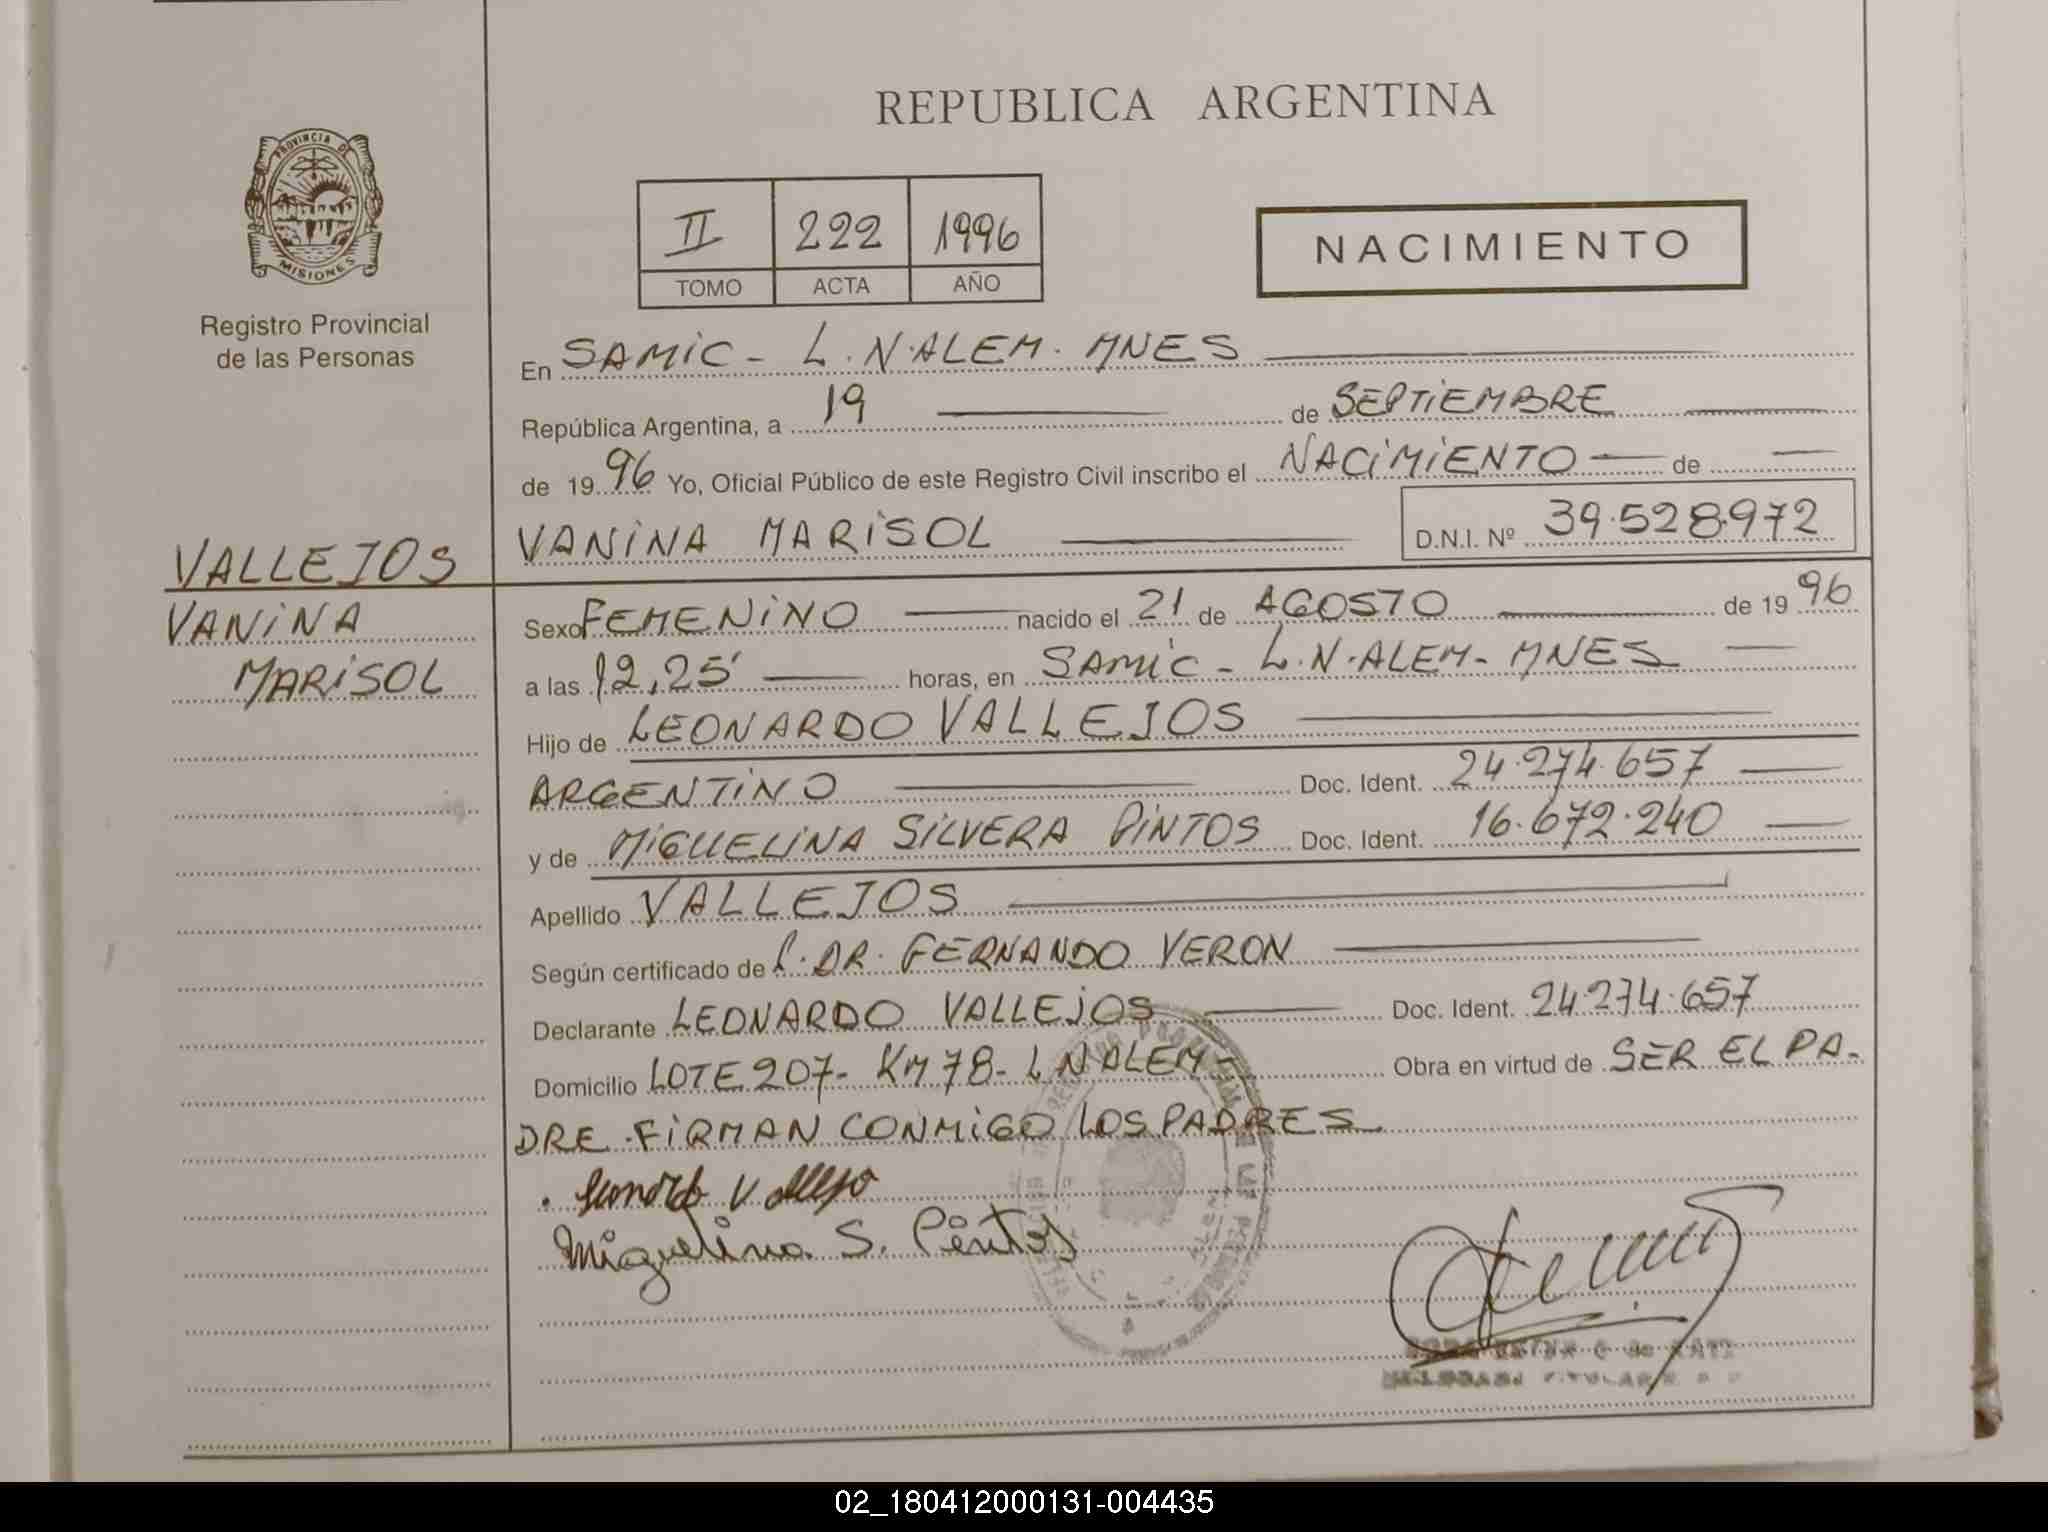 REPUBLICA ARGENTINA
PROVINCIA DE
MISIONES
Registro Provincial
de las Personas
II 222 1996
TOMO ACTA AÑO
NACIMIENTO
En SAMIC - L.N.ALEM. MNES
República Argentina, a 19 de SEPTIEMBRE
de 1996 Yo, Oficial Público de este Registro Civil inscribo el NACIMIENTO de
VANINA MARISOL D.N.I. Nº 39.528.972
VALLEJOS
VANINA
MARISOL
Sexo FEMENINO nacido el 21 de AGOSTO de 1996
a las 12,25' horas, en SAMIC - L.N.ALEM - MNES
Hijo de LEONARDO VALLEJOS
ARGENTINO Doc. Ident. 24.274.657
y de MIGUELINA SILVERA PINTOS Doc. Ident. 16.672.240
Apellido VALLEJOS
Según certificado de DR. FERNANDO VERON
Declarante LEONARDO VALLEJOS Doc. Ident. 24.274.657
Domicilio LOTE 207 - KM 78 - L N ALEM - Obra en virtud de SER EL PA-
DRE. FIRMAN CONMIGO LOS PADRES
Leonardo Vallejo
Miguelina S. Pintos
02_180412000131-004435